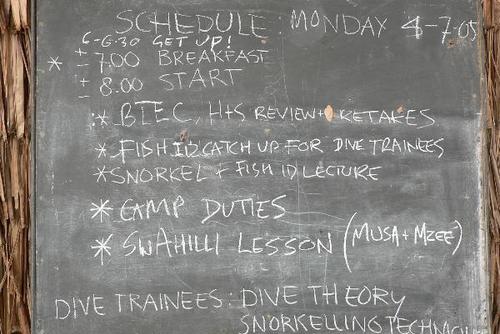 SCHEDULE: MONDAY 4-7-05
6-6.30 GET UP!
* ± 7.00 BREAKFAST
± 8.00 START
* BTEC, H+S REVIEW + KETAKES
* FISH ID CATCH UP FOR DIVE TRAINEES
* SNORKEL + FISH ID LECTURE
* CAMP DUTIES
* SWAHILLI LESSON (MUSA + MZEE)
DIVE TRAINEES: DIVE THEORY
SNORKELLING TECHNIQU